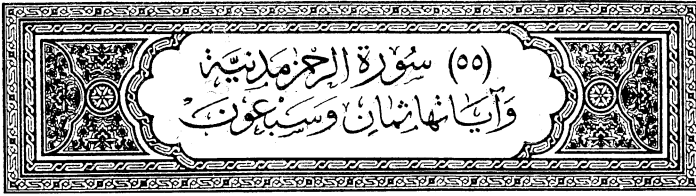 (٥٥) سُورَة الرحمن مَدنيَّة
وَآيَاتهَا ثمَانِ وَسَبْعُونَ